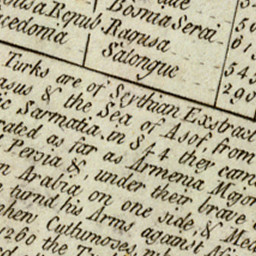 Bosnia Serai
Ragusa Repub Ragusa
cedonia Salonque
Turks are of Scythian Exstract
asus & the Sea of Asof, from
ic Sarmatia, in 844 they came
rated as far as Armenia Major
Persia &, under their brave
n Arabia on one side, & Med
turnd his Arms against
hen Cutlumoses
1260 the